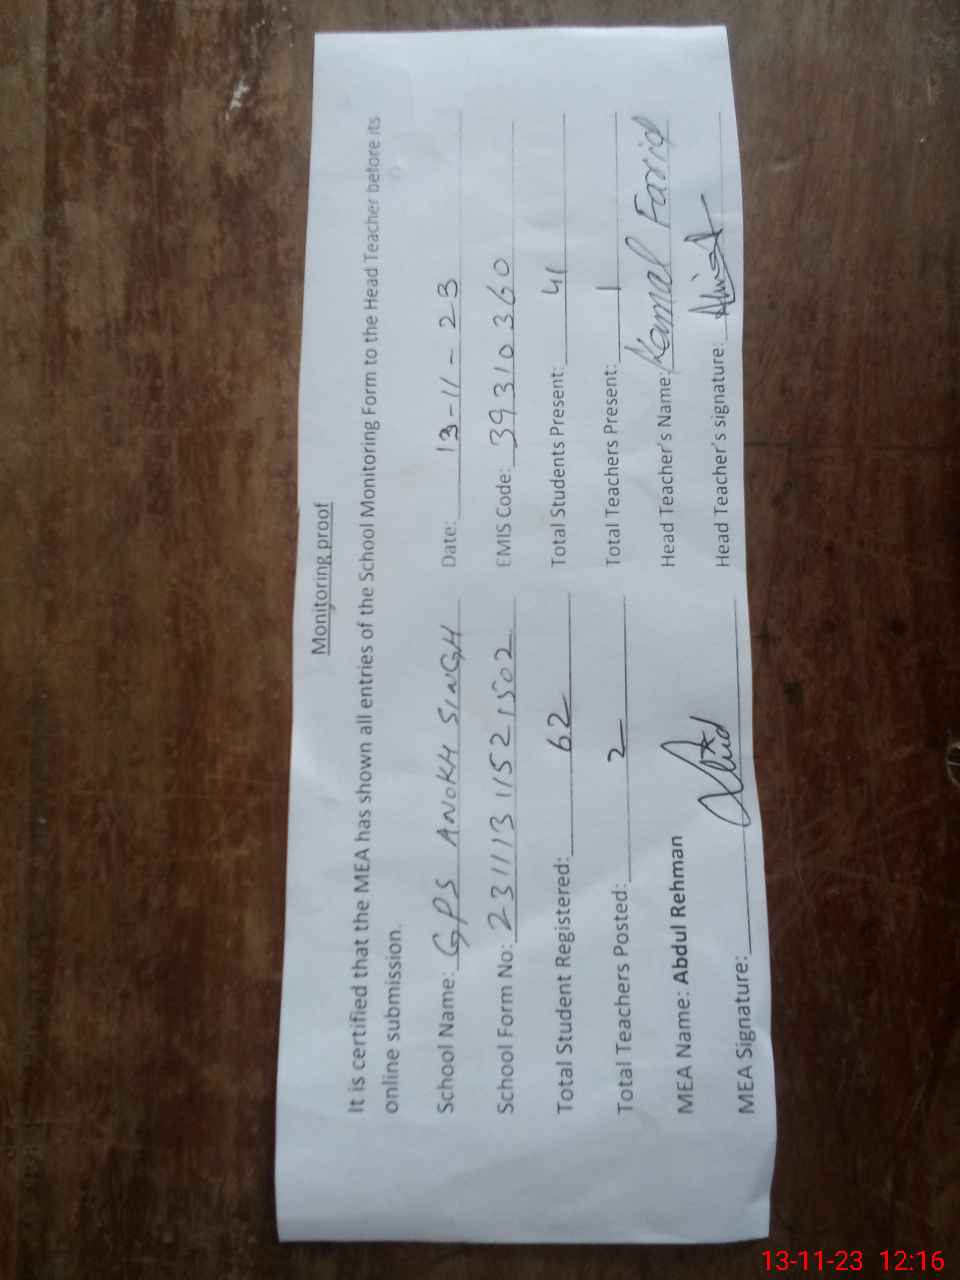 Monitoring proof
It is certified that the MEA has shown all entries of the School Monitoring Form to the Head Teacher before its
online submission.
School Name: GPS ANOKH SINGH Date: 13-11-23
School Form No: 23111311521502 EMIS Code: 39310360
Total Student Registered: 62 Total Students Present: 41
Total Teachers Posted: 2 Total Teachers Present: 1
MEA Name: Abdul Rehman Head Teacher's Name: Kamal Farid
MEA Signature: Head Teacher's signature:
13-11-23 12:16